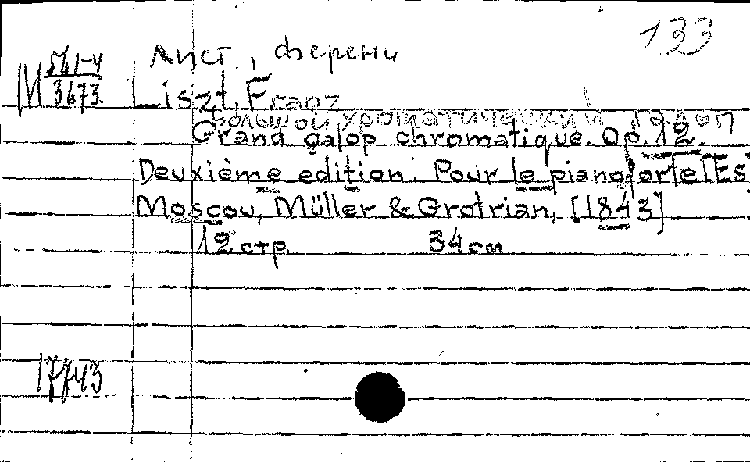 133
Лист, Ференц
М 561-4
3673
Liszt, Franz
Большой хроматический галоп
Grand galop chromatique. Op. 12.
Deuxième edition. Pour le pianoforte [Es
Moscou, Müller & Grotrian, [1843]
12 стр. 34 см
17743